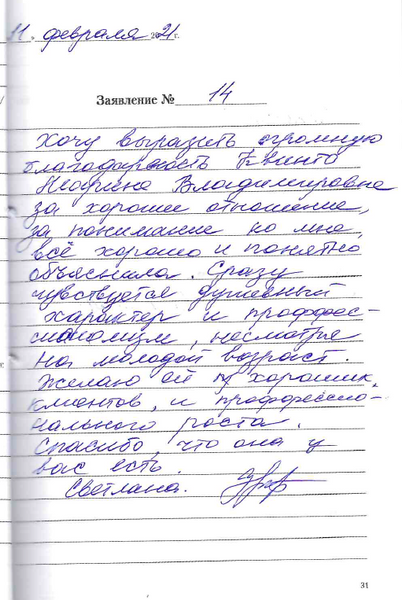 11. февраля 2021 г.
Заявление № 14
Хочу выразить огромную
благодарность
Владимировне
за хорошее отношение,
за понимание ко мне,
всё хорошо и понятно
объяснила. Сразу
чувствуется душевный
характер и проффес-
сионализм, несмотря
на молодой возраст.
Желаю ей хороших
клиентов, и проффессио-
нального роста.
Спасибо, что она у
вас есть.
Светлана.
31